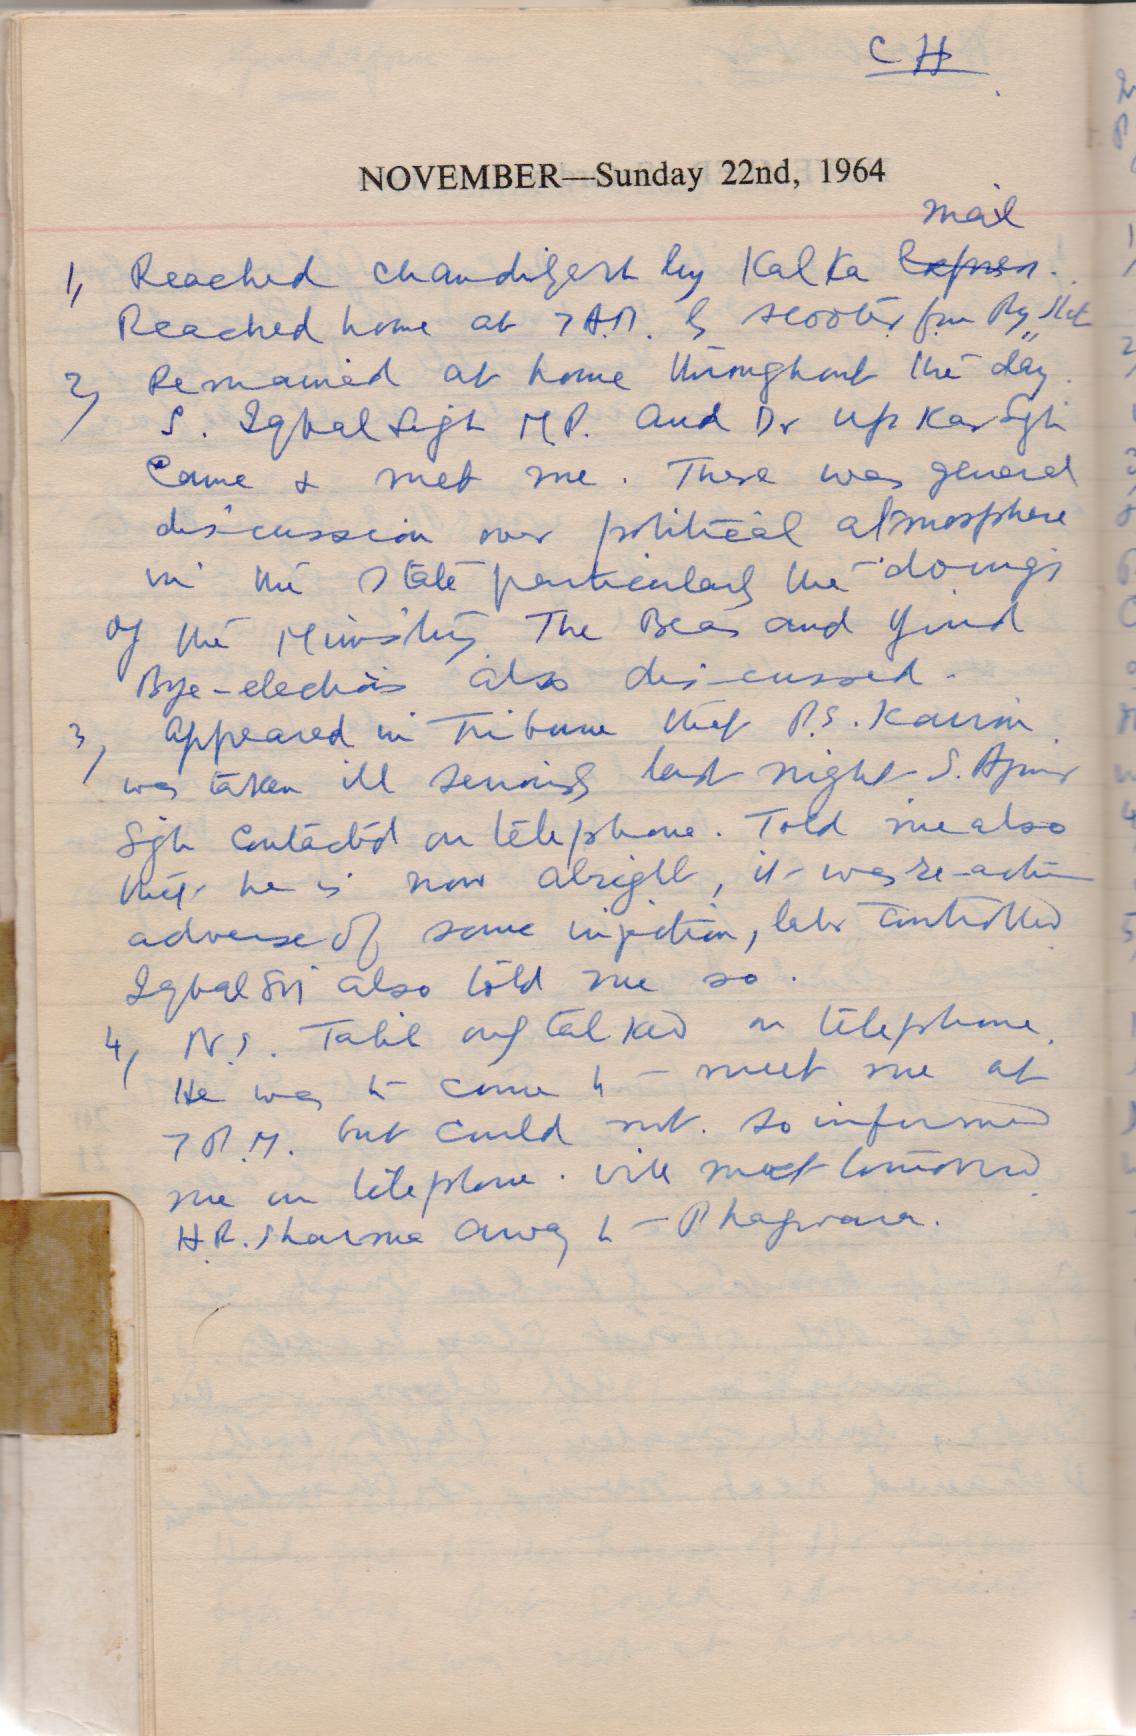 CH
NOVEMBER—Sunday 22nd, 1964
mail
1, Reached Chandigarh by Kalka Express.
Reached home at 7 A.M. by scooter from Rly Stn
2, Remained at home throughout the day.
S. Iqbal Singh M.P. and Dr Upkar Sgh
Came & met me. There was general
discussion over political atmosphere
in the State particularly the doings
of the Ministry. The Beas and Jind
Bye-elections also discussed.
3, Appeared in Tribune that P.S. Kairon
was taken ill seriously last night S. Ajmer
Sgh Contacted on telephone. Told me also
that he is now alright, it was re-action
adverse of some injection, later controlled
Iqbal Sri also told me so.
4, N.S. Talib only talked on telephone.
He was to come to meet me at
7 P.M. but could not. So informed
me on telephone. will meet tomorrow
H.R. Sharma away to Phagwara.